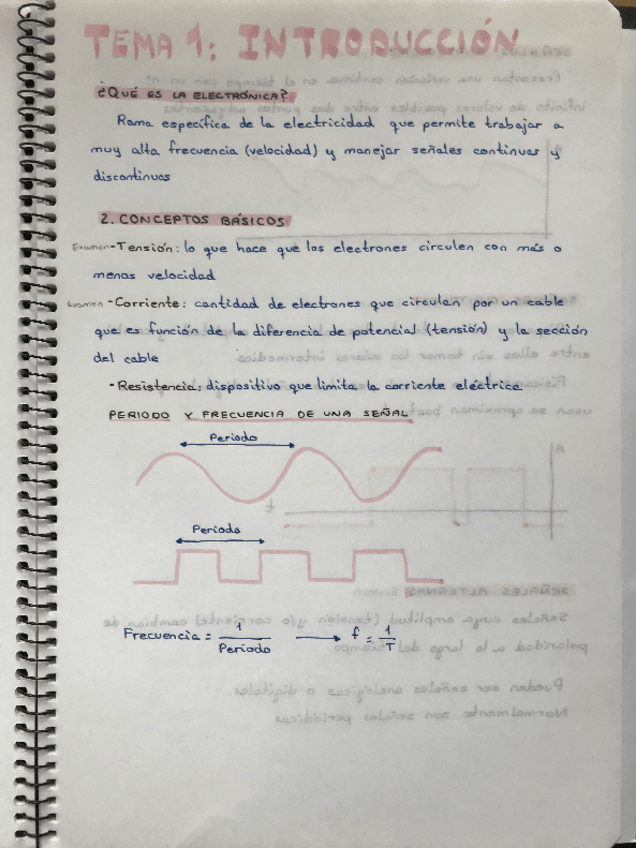 TEMA 1: INTRODUCCIÓN
¿QUÉ ES LA ELECTRÓNICA?
Rama específica de la electricidad que permite trabajar a
muy alta frecuencia (velocidad) y manejar señales continuas y
discontinuas
2. CONCEPTOS BÁSICOS
Examen - Tensión: lo que hace que los electrones circulen con más o
menos velocidad
Examen - Corriente: cantidad de electrones que circulan por un cable
que es función de la diferencia de potencial (tensión) y la sección
del cable
- Resistencia: dispositivo que limita la corriente eléctrica
PERIODO Y FRECUENCIA DE UNA SEÑAL
Periodo
Periodo
Frecuencia = 1 / Periodo → f = 1 / T